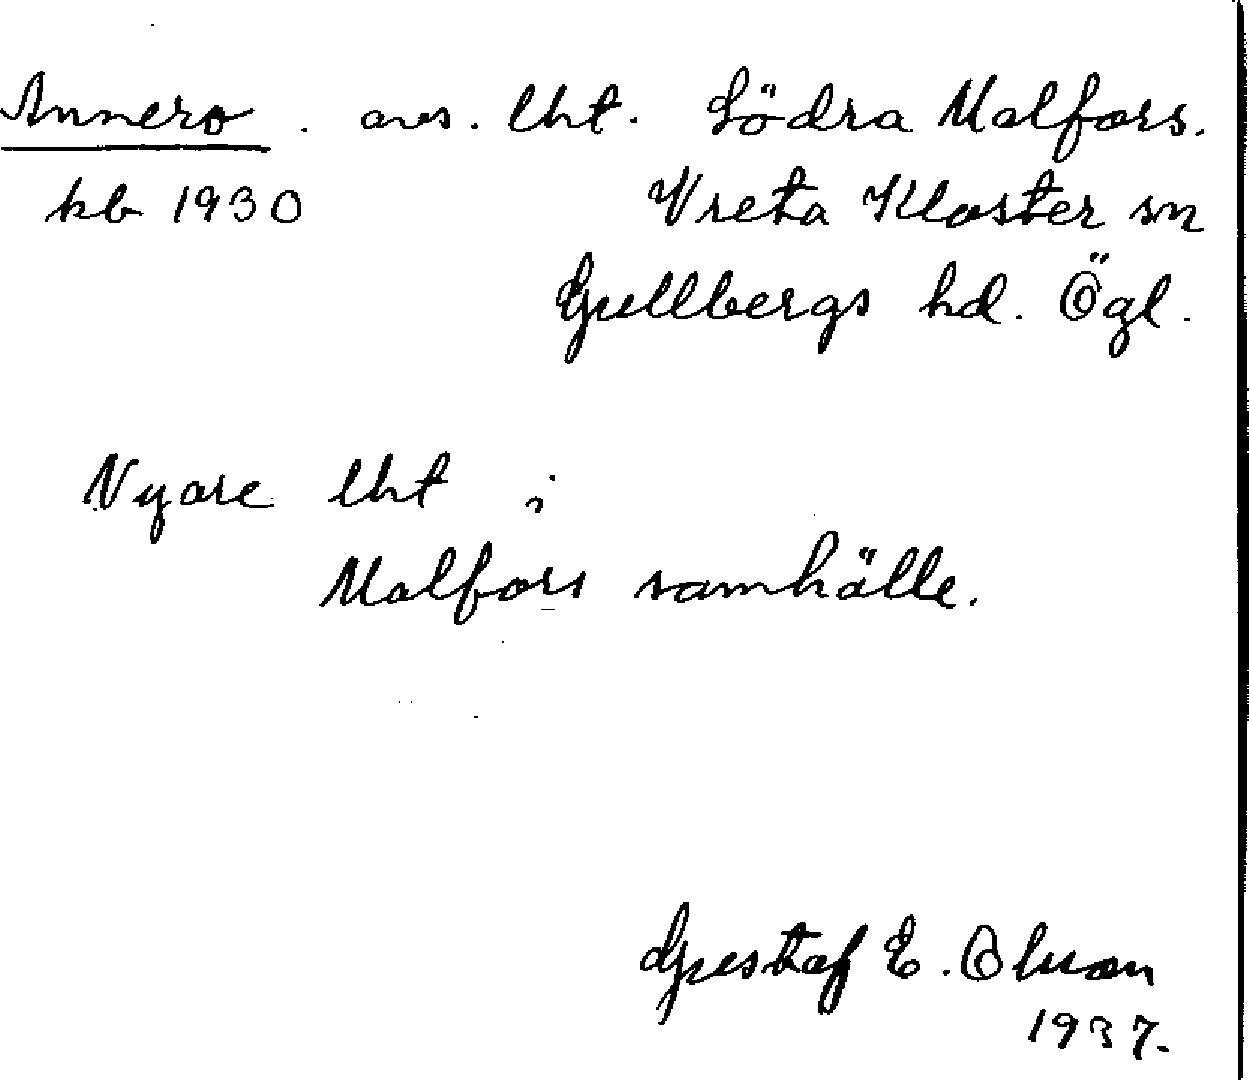 Annero. avs. lht. Södra Malfors.
kb 1930 Vreta Kloster sn
Gullbergs hd. Ögl.
Nyare lht i
Malfors samhälle.
Gustaf E. Olsson
1937.